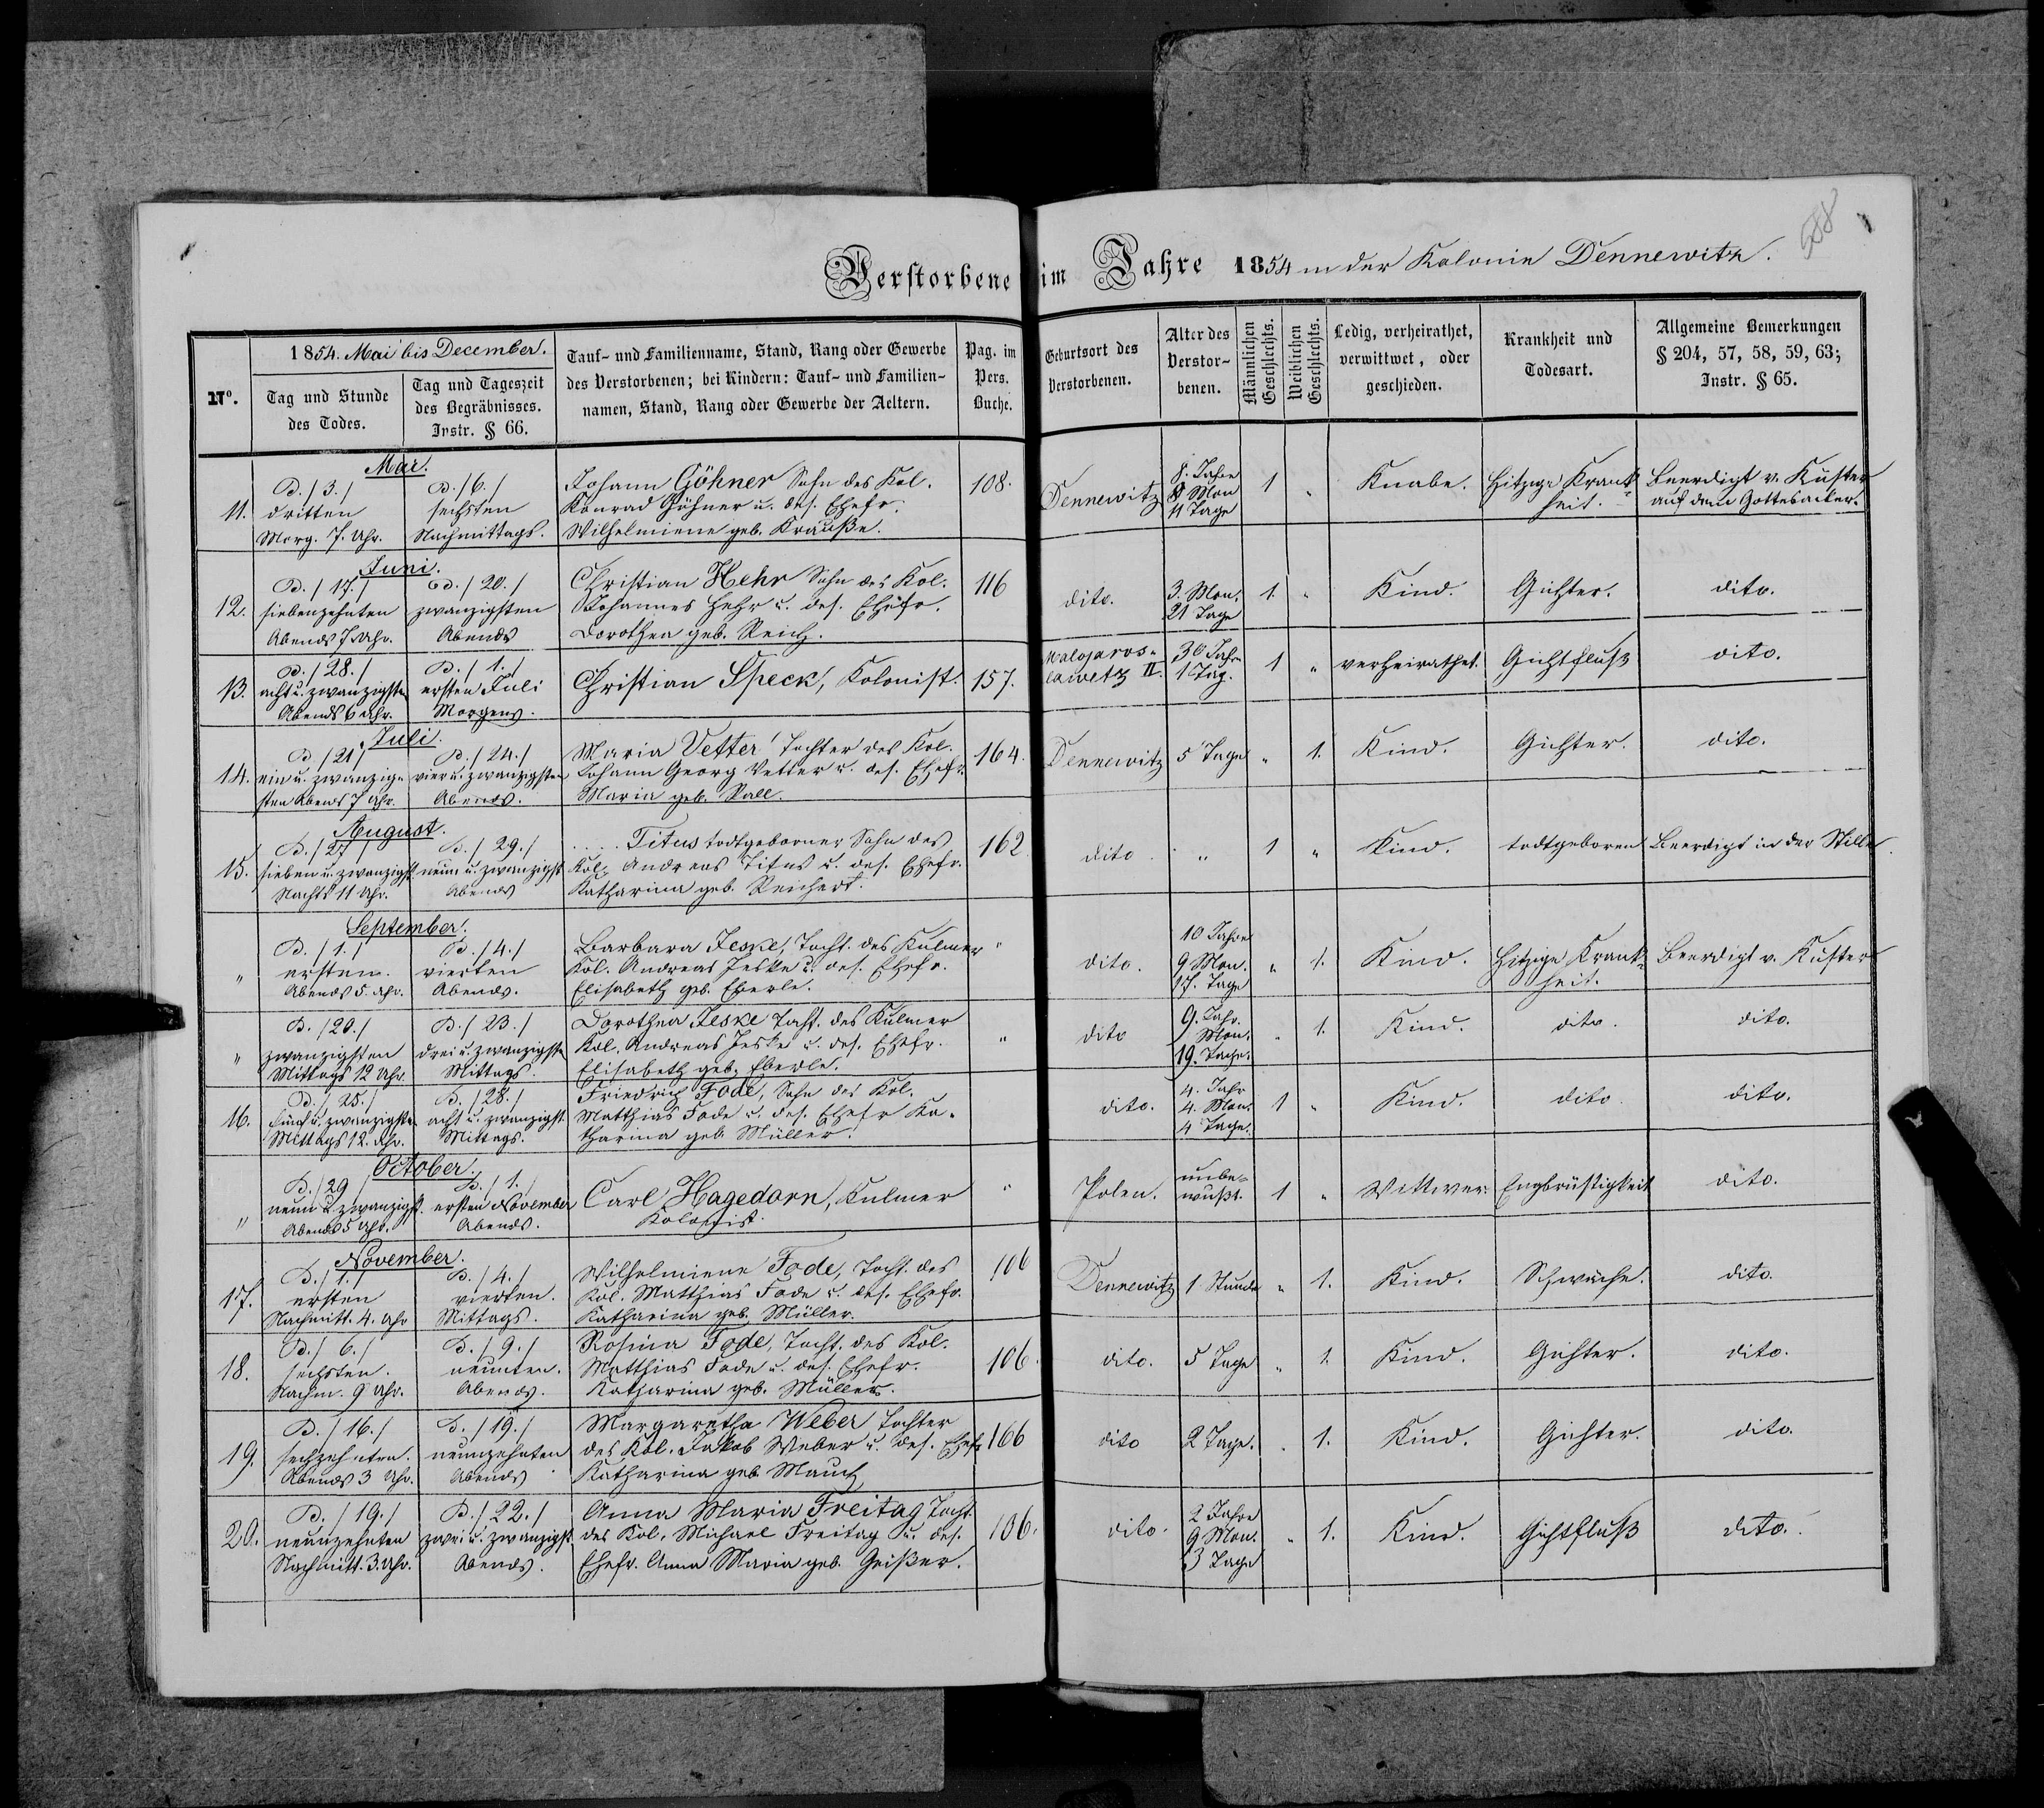 588
Verstorbene im Jahre 1854 in der Kolonie Dennewitz.
1854. Mai bis December.
No.
Tag und Stunde
des Todes.
Tag und Tageszeit
des Begräbnisses.
Instr. § 66.
Tauf- und Familienname, Stand, Rang oder Gewerbe
des Verstorbenen; bei Kindern: Tauf- und Familien-
namen, Stand, Rang oder Gewerbe der Aeltern.
Pag. im
Pers.
Buche.
Geburtsort des
Verstorbenen.
Alter des
Verstor-
benen.
Männlichen
Geschlechts.
Weiblichen
Geschlechts.
Ledig, verheirathet,
verwittwet, oder
geschieden.
Krankheit und
Todesart.
Allgemeine Bemerkungen
§ 204, 57, 58, 59, 63;
Instr. § 65.
Mai.
11.
D. /3./
dritten
Morg. 7. Uhr.
D. /6./
sechsten
Nachmittags.
Johann Göhner Sohn des Kol.
Konrad Göhner u. des. Ehefr.
Wilhelmiene geb. Krauße.
108.
Dennewitz
8. Jahre
8 Mon
11 Tage
1 "
Knabe.
Hitzige Krank-
heit.
Beerdigt v. Küster
auf dem Gottesacker.
Juni.
12.
D. /17./
siebenzehnten
Abends 7 Uhr.
D. /20./
zwanzigsten
Abends
Christian Hehr Sohn des Kol.
Johannes Hehr u. des. Ehefr.
Dorothea geb. Reich.
116
dito.
3. Mon.
21 Tage
1. "
Kind.
Gichter.
dito.
13.
D. /28./
acht u. zwanzigsten
Abends 6 Uhr.
D. /1./
ersten Juli
Morgens.
Christian Speck, Kolonist.
157.
Malojaros-
lawetz II.
36 Jahr
1 Tag.
1 "
verheirathet.
Gichtfluß
dito.
Juli.
14.
D /21/
ein u. zwanzig-
sten Abends 7 Uhr.
D. /24./
vier u. zwanzigsten
Abends.
Maria Vetter Tochter des Kol.
Johann Georg Vetter u. des. Ehefr.
Maria geb. Fall.
164.
Dennewitz
5 Tage
" 1.
Kind.
Gichter.
dito.
August.
15.
D. /27/
sieben u. zwanzigst
Nachts 11 Uhr.
D. /29./
neun u. zwanzigst
Abends
.... Titus todtgeborner Sohn des
Kol. Andreas Titus u. des. Ehefr.
Katharina geb. Reichert.
162
dito.
"
1 "
Kind.
todtgeboren
Beerdigt in der Stille.
September.
"
D. /1./
ersten.
Abends 5. Uhr.
D. /4./
vierten
Abends.
Barbara Jeske, Tocht. des Kulmer
Kol. Andreas Jeske u. des. Ehefr.
Elisabeth geb. Eberle.
"
dito.
10 Jahre
9 Mon.
17. Tage
" 1.
Kind.
Hitzige Krank-
heit.
Beerdigt v. Küster
"
D. /20./
zwanzigsten
Mittags 12 Uhr.
D. /23./
drei u. zwanzigsten
Mittags.
Dorothea Jeske Tocht. des Kulmer
Kol. Andreas Jeske u. des. Ehefr.
Elisabeth geb. Eberle.
"
dito
9. Jahr.
Mon.
19. Tage.
" 1.
Kind.
dito.
dito.
16.
D. /25./
fünf u. zwanzigsten
Mittags 12. Uhr.
D. /28./
acht u. zwanzigst.
Mittags.
Friedrich Fode, Sohn des Kol.
Matthias Fode u. des. Ehefr Ka-
tharina geb. Müller.
dito.
4. Jahr
4. Mon.
4 Tage.
1 "
Kind.
dito
dito.
October.
"
D. /29/
neun u. zwanzigst.
Abends 5 Uhr.
D. /1./
ersten November
Abends.
Carl Hagedorn, Kulmer
Kolonist.
"
Polen.
unbe-
wußt.
1 "
Wittwer.
Engbrüstigkeit
dito.
November.
17.
D. /1./
ersten
Nachmitt. 4. Uhr
D. /4./
vierten.
Mittags.
Wilhelmiene Fode, Tocht. des
Kol. Matthias Fode u. des. Ehefr.
Katharina geb. Müller.
106
Dennewitz
1 Stunde
" 1.
Kind.
Schwäche.
dito.
18.
D. /6./
sechsten.
Nachm. 9 Uhr.
D. /9./
neunten.
Abends.
Rosina Fode, Tocht. des Kol.
Matthias Fode u. des. Ehefr.
Katharina geb. Müller.
106.
dito.
5 Tage
" 1.
Kind.
Gichter.
dito.
19.
D. /16./
sechzehnten.
Abends 3 Uhr.
D. /19./
neunzehnten
Abends
Margaretha Weber Tochter
des Kol. Jakob Weber u. des. Ehefr
Katharina geb. Mauch
166
dito
2 Tage.
" 1.
Kind.
Gichter.
dito.
20.
D. /19./
neunzehnten
Nachmitt. 3. Uhr.
D. /22./
zwei u. zwanzigst
Abends.
Anna Maria Freitag Tocht.
des Kol. Michael Freitag u. des.
Ehefr. Anna Maria geb. Geißer.
106.
dito.
2 Jahre
9 Mon.
3 Tage
" 1.
Kind.
Gichtfluß
dito.